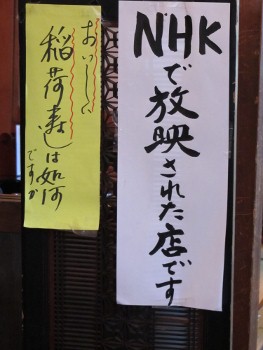 NHKで放映された店です
おいしい
稲荷寿しは如何
ですか